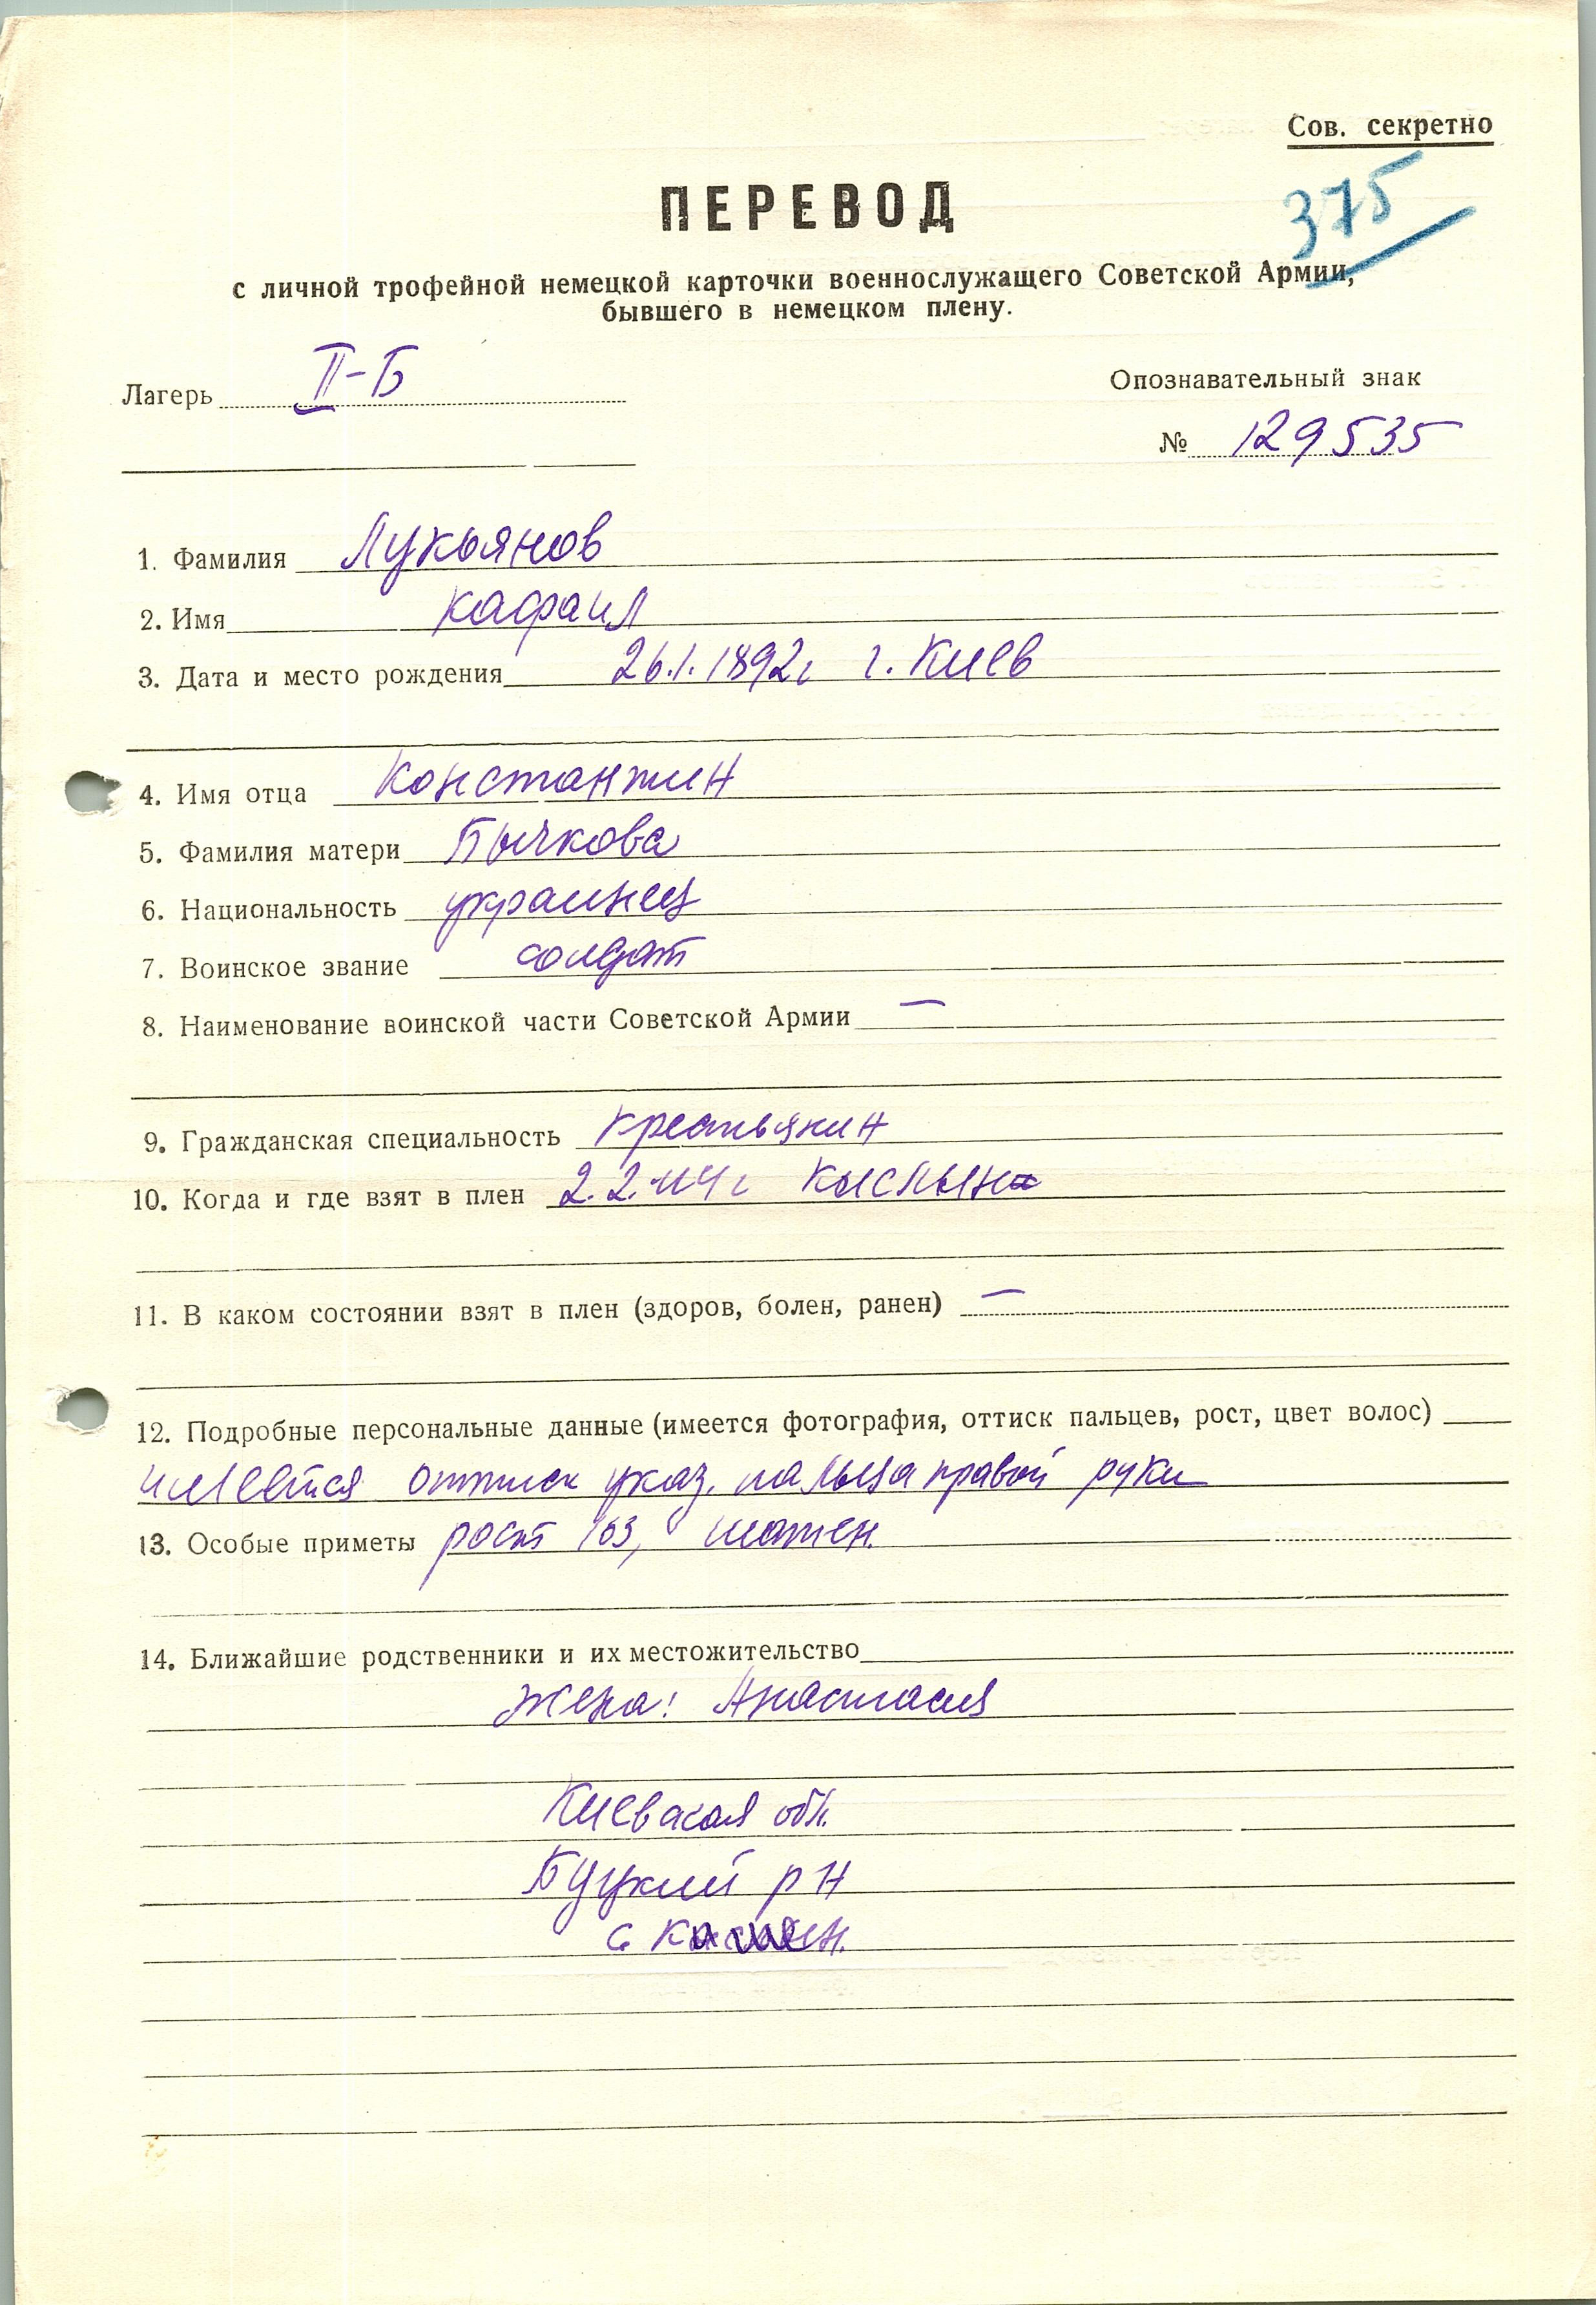 Сов. секретно
375
ПЕРЕВОД
с личной трофейной немецкой карточки военнослужащего Советской Армии,
бывшего в немецком плену.
Лагерь II-Б
Опознавательный знак
№ 129535
1. Фамилия Лукьянов
2. Имя Кафаил
3. Дата и место рождения 26.1.1892г г. Киев
4. Имя отца Константин
5. Фамилия матери Бычкова
6. Национальность украинец
7. Воинское звание солдат
8. Наименование воинской части Советской Армии —
9. Гражданская специальность крестьянин
10. Когда и где взят в плен 2.2.44г
11. В каком состоянии взят в плен (здоров, болен, ранен) —
12. Подробные персональные данные (имеется фотография, оттиск пальцев, рост, цвет волос)
имеется оттиск указ. пальца правой руки
13. Особые приметы рост 163, шатен.
14. Ближайшие родственники и их местожительство
Жена: Анастасия
Киевская обл.
Буцкий р н
с.